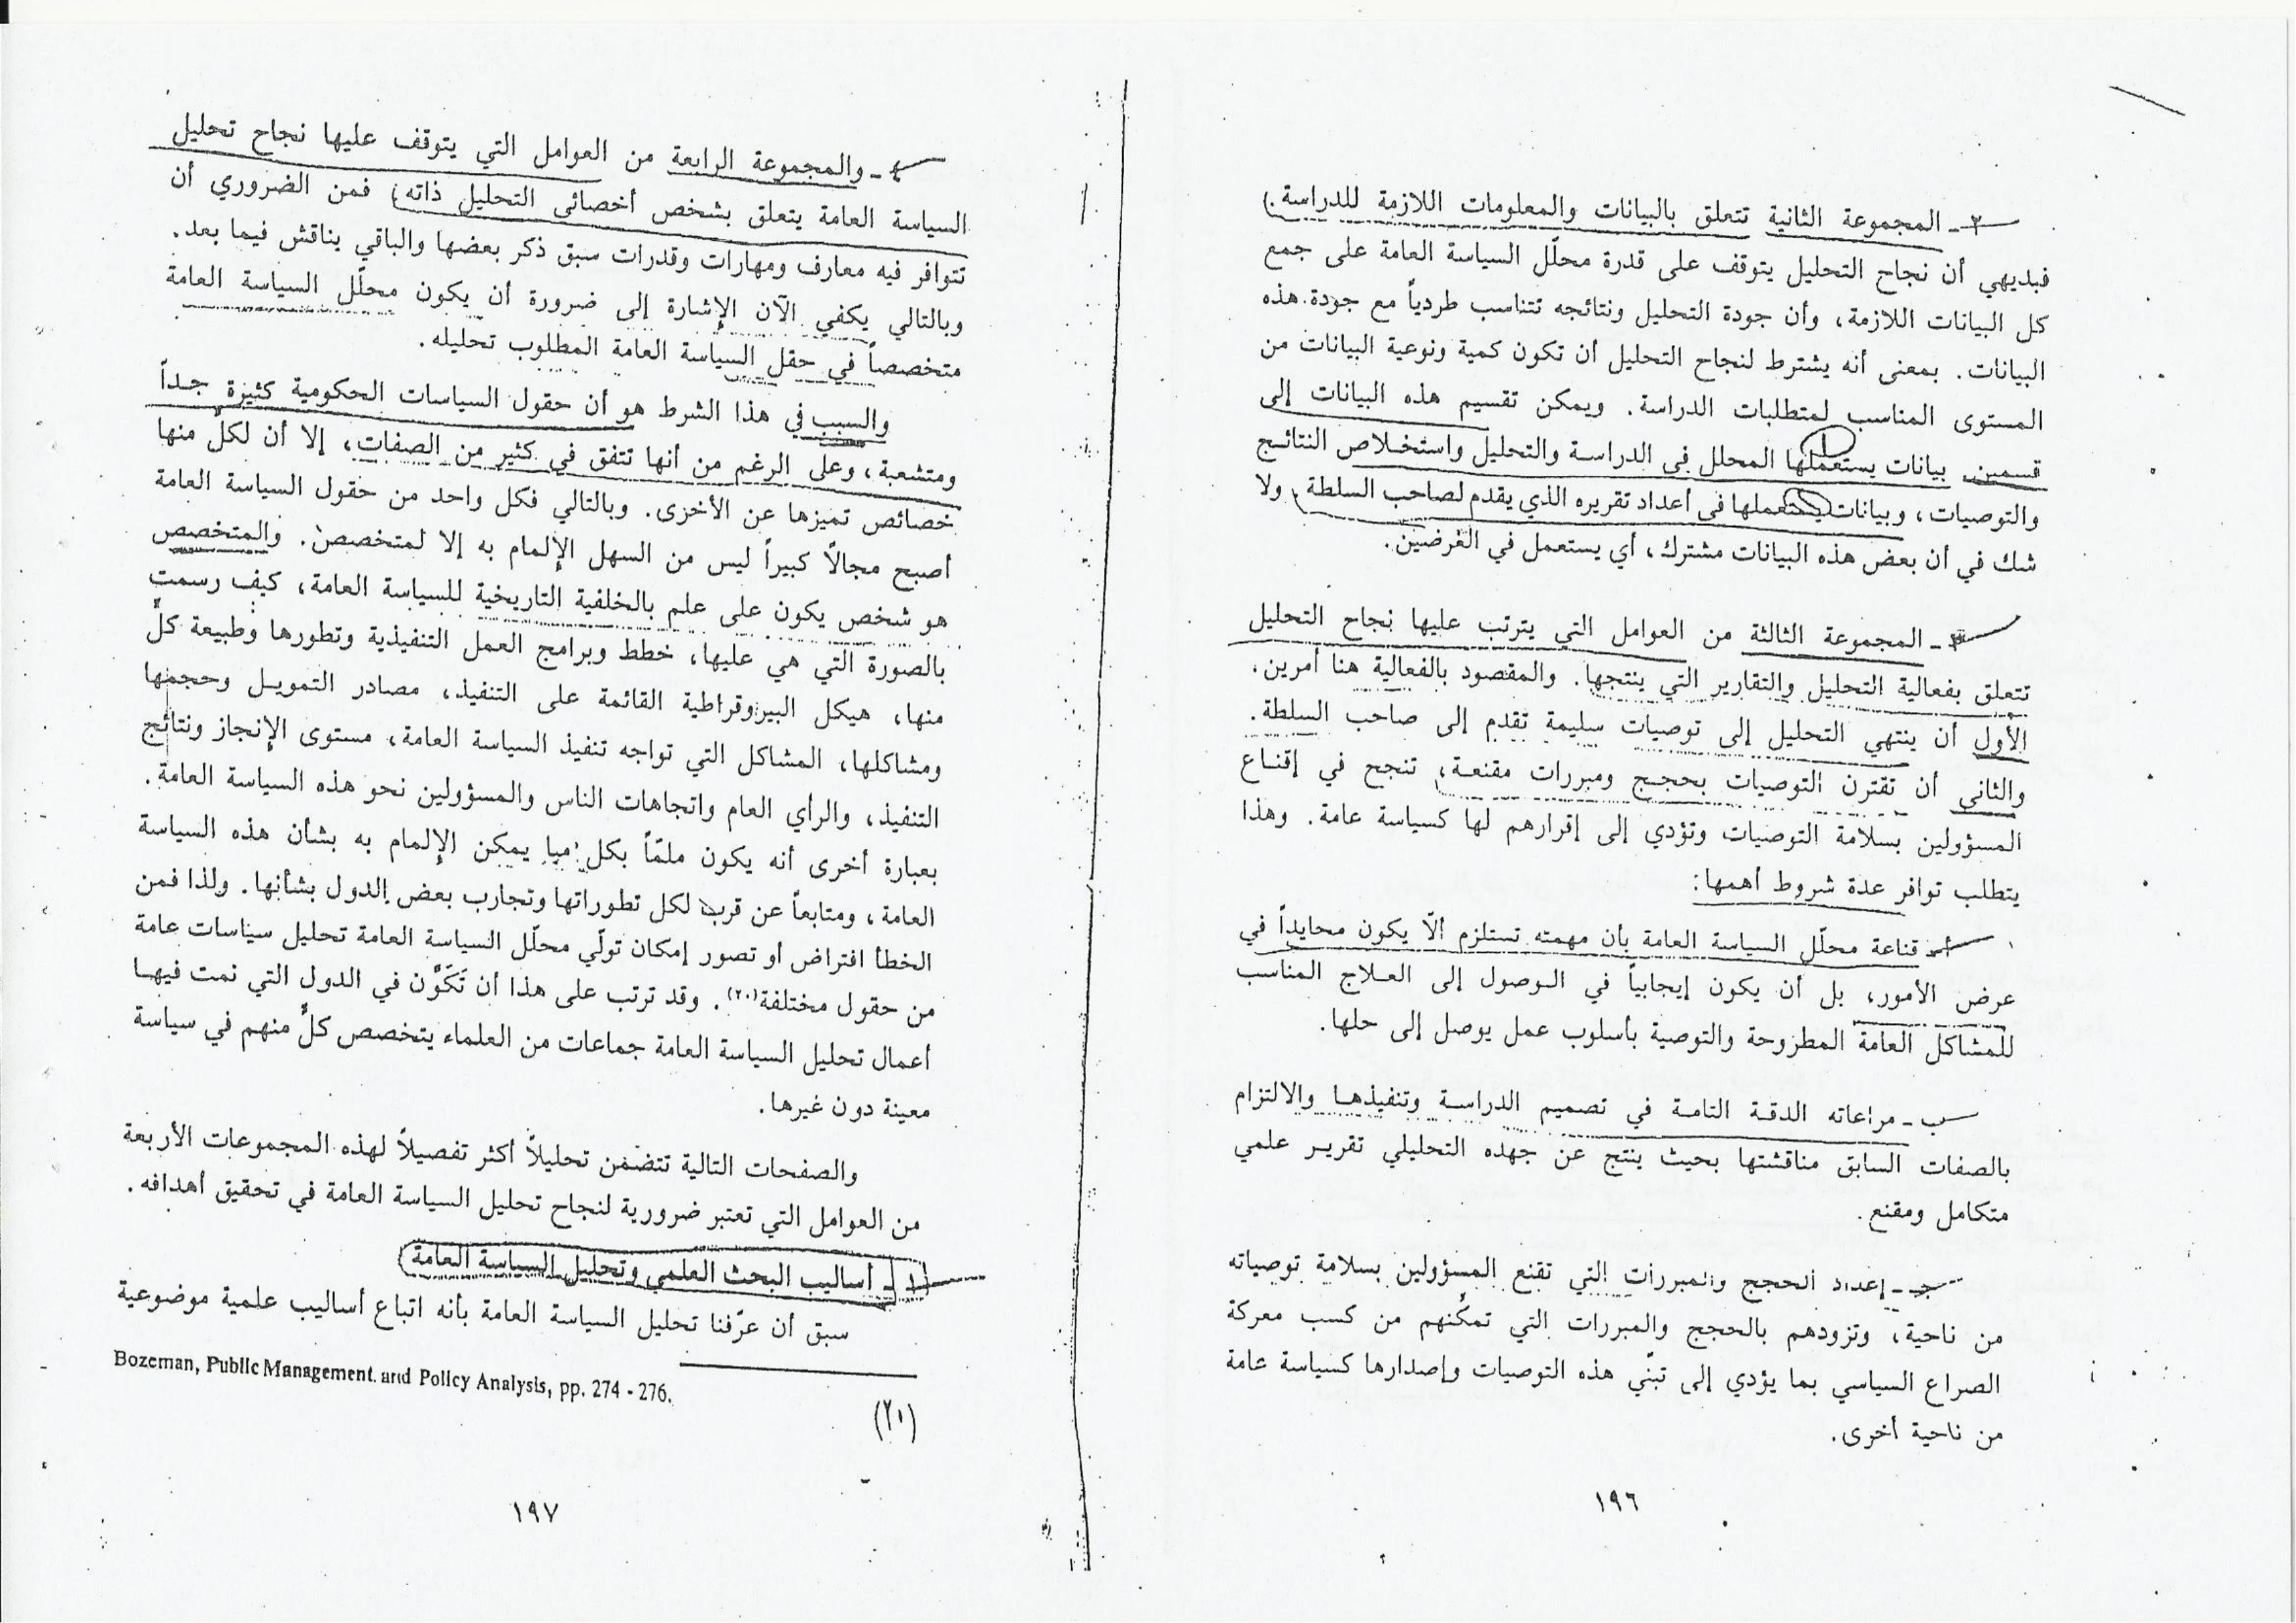 ٢ - المجموعة الثانية تتعلق بالبيانات والمعلومات اللازمة للدراسة.
فبديهي أن نجاح التحليل يتوقف على قدرة محلّل السياسة العامة على جمع
كل البيانات اللازمة، وأن جودة التحليل ونتائجه تتناسب طردياً مع جودة هذه
البيانات. بمعنى أنه يشترط لنجاح التحليل أن تكون كمية ونوعية البيانات من
المستوى المناسب لمتطلبات الدراسة. ويمكن تقسيم هذه البيانات إلى
قسمين. بيانات يستعملها المحلل في الدراسة والتحليل واستخلاص النتائج
والتوصيات، وبيانات يستعملها في أعداد تقريره الذي يقدم لصاحب السلطة، ولا
شك في أن بعض هذه البيانات مشترك، أي يستعمل في الغرضين.
٣ - المجموعة الثالثة من العوامل التي يترتب عليها نجاح التحليل
تتعلق بفعالية التحليل والتقارير التي ينتجها. والمقصود بالفعالية هنا أمرين.
الأول أن ينتهي التحليل إلى توصيات سليمة تقدم إلى صاحب السلطة.
والثاني أن تقترن التوصيات بحجج ومبررات مقنعة، تنجح في إقناع
المسؤولين بسلامة التوصيات وتؤدي إلى إقرارهم لها كسياسة عامة. وهذا
يتطلب توافر عدة شروط أهمها:
أ - قناعة محلّل السياسة العامة بأن مهمته تستلزم ألاّ يكون محايداً في
عرض الأمور، بل أن يكون إيجابياً في الوصول إلى العلاج المناسب
للمشاكل العامة المطروحة والتوصية بأسلوب عمل يوصل إلى حلها.
ب - مراعاته الدقة التامة في تصميم الدراسة وتنفيذها والالتزام
بالصفات السابق مناقشتها بحيث ينتج عن جهده التحليلي تقرير علمي
متكامل ومقنع.
جـ - إعداد الحجج والمبررات التي تقنع المسؤولين بسلامة توصياته
من ناحية، وتزودهم بالحجج والمبررات التي تمكّنهم من كسب معركة
الصراع السياسي بما يؤدي إلى تبنّي هذه التوصيات وإصدارها كسياسة عامة
من ناحية أخرى.
١٩٦
٤ - والمجموعة الرابعة من العوامل التي يتوقف عليها نجاح تحليل
السياسة العامة يتعلق بشخص أخصائي التحليل ذاته، فمن الضروري أن
تتوافر فيه معارف ومهارات وقدرات سبق ذكر بعضها والباقي يناقش فيما بعد.
وبالتالي يكفي الآن الإشارة إلى ضرورة أن يكون محلّل السياسة العامة
متخصصاً في حقل السياسة العامة المطلوب تحليله.
والسبب في هذا الشرط هو أن حقول السياسات الحكومية كثيرة جداً
ومتشعبة، وعلى الرغم من أنها تتفق في كثير من الصفات، إلا أن لكلّ منها
خصائص تميزها عن الأخرى. وبالتالي فكل واحد من حقول السياسة العامة
أصبح مجالاً كبيراً ليس من السهل الإلمام به إلا لمتخصص. والمتخصص
هو شخص يكون على علم بالخلفية التاريخية للسياسة العامة، كيف رسمت
بالصورة التي هي عليها، خطط وبرامج العمل التنفيذية وتطورها وطبيعة كلّ
منها، هيكل البيروقراطية القائمة على التنفيذ، مصادر التمويل وحجمها
ومشاكلها، المشاكل التي تواجه تنفيذ السياسة العامة، مستوى الإنجاز ونتائج
التنفيذ، والرأي العام واتجاهات الناس والمسؤولين نحو هذه السياسة العامة.
بعبارة أخرى أنه يكون ملمّاً بكل ما يمكن الإلمام به بشأن هذه السياسة
العامة، ومتابعاً عن قرب لكل تطوراتها وتجارب بعض الدول بشأنها. ولذا فمن
الخطأ افتراض أو تصور إمكان تولّي محلّل السياسة العامة تحليل سياسات عامة
من حقول مختلفة(٢٠). وقد ترتب على هذا أن تَكَوَّن في الدول التي نمت فيها
أعمال تحليل السياسة العامة جماعات من العلماء يتخصص كلٌّ منهم في سياسة
معينة دون غيرها.
والصفحات التالية تتضمن تحليلاً أكثر تفصيلاً لهذه المجموعات الأربعة
من العوامل التي تعتبر ضرورية لنجاح تحليل السياسة العامة في تحقيق أهدافه.
١ - أساليب البحث العلمي وتحليل السياسة العامة
سبق أن عرّفنا تحليل السياسة العامة بأنه اتباع أساليب علمية موضوعية
Bozeman, Public Management and Policy Analysis, pp. 274 - 276.
(٢٠)
١٩٧